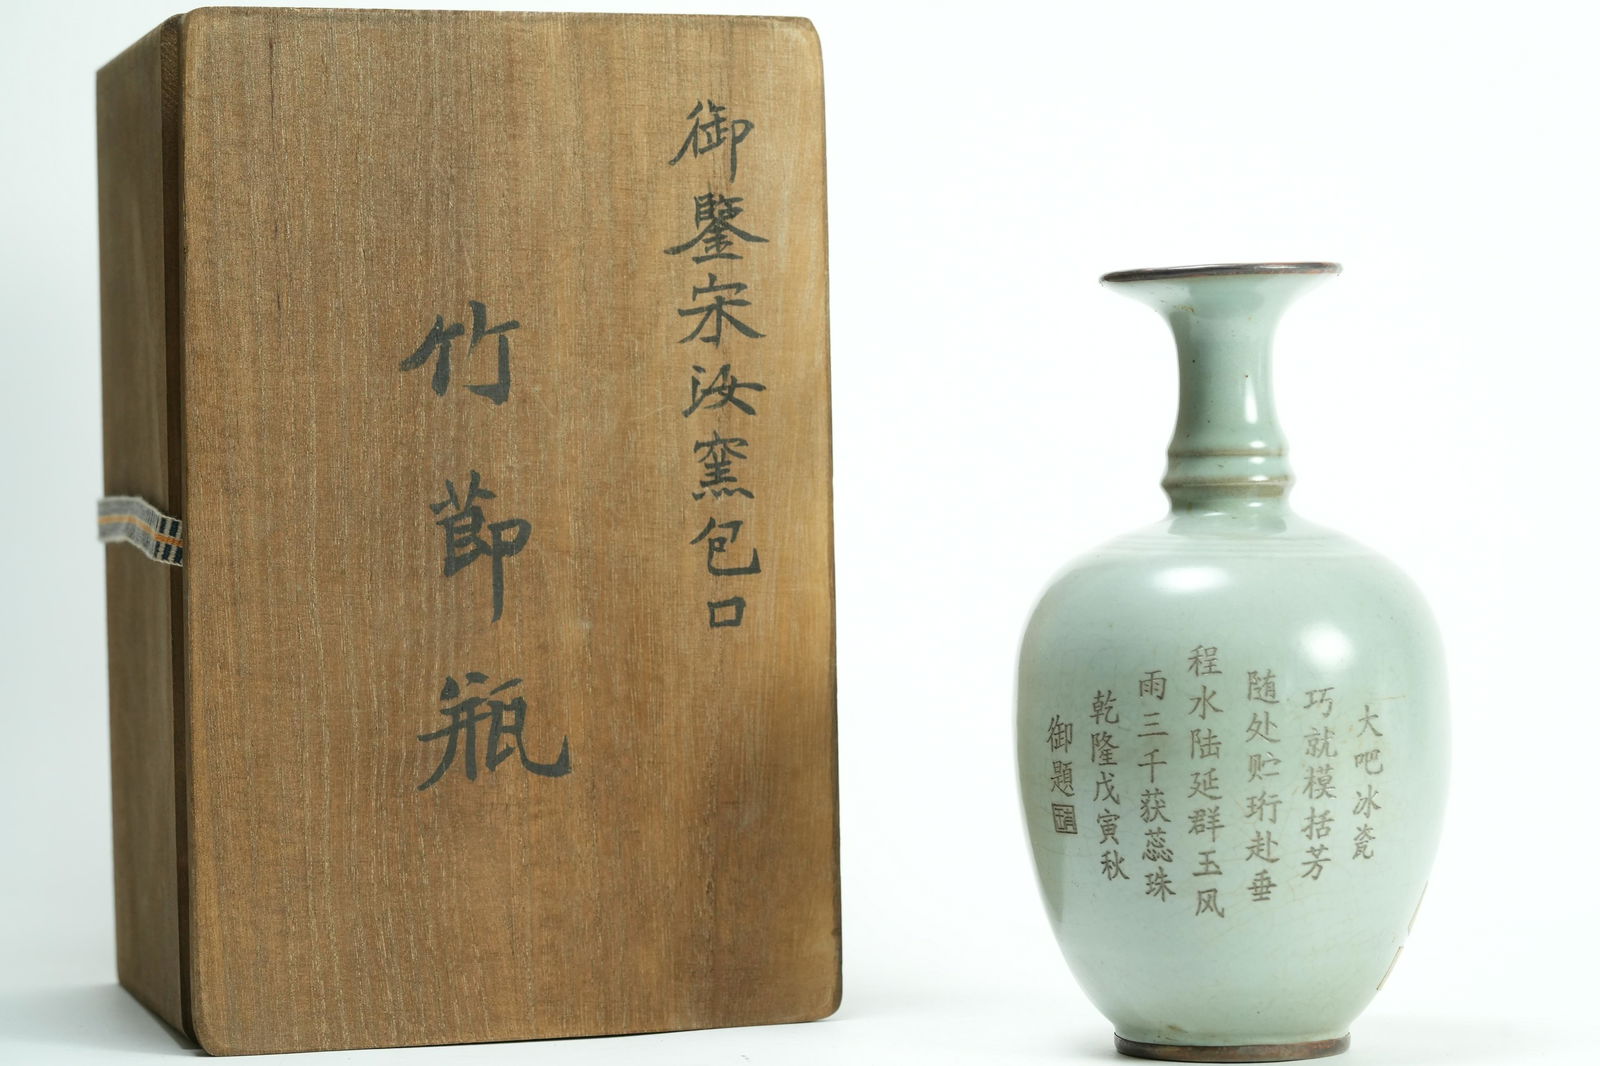 御鑒宋汝窯包口
竹節瓶
大吧冰瓷
巧就模括芳
随处贮珩赴垂
程水陆延群玉风
雨三千获蕊珠
乾隆戊寅秋
御題